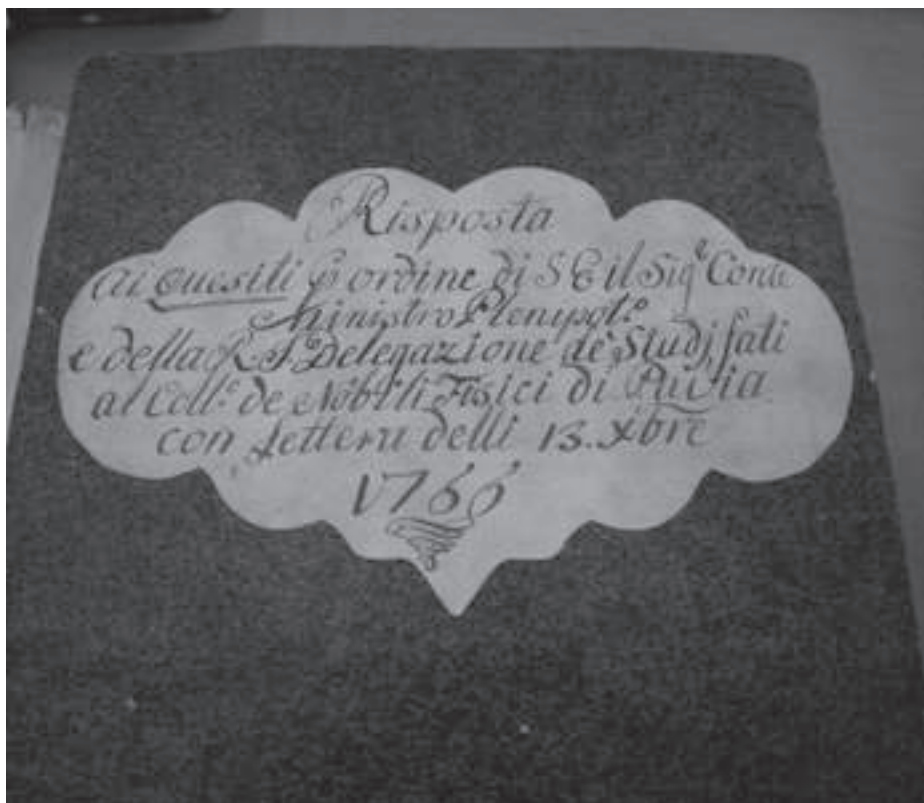 Risposta
Ai Quesiti P ordine di S E il Sig.e Conte
Ministro Plenipot.o
e della R. Delegazione de Studj fati
al Coll.o de Nobili Fisici di Pavia
con Lettera delli 13. Xbre
1766